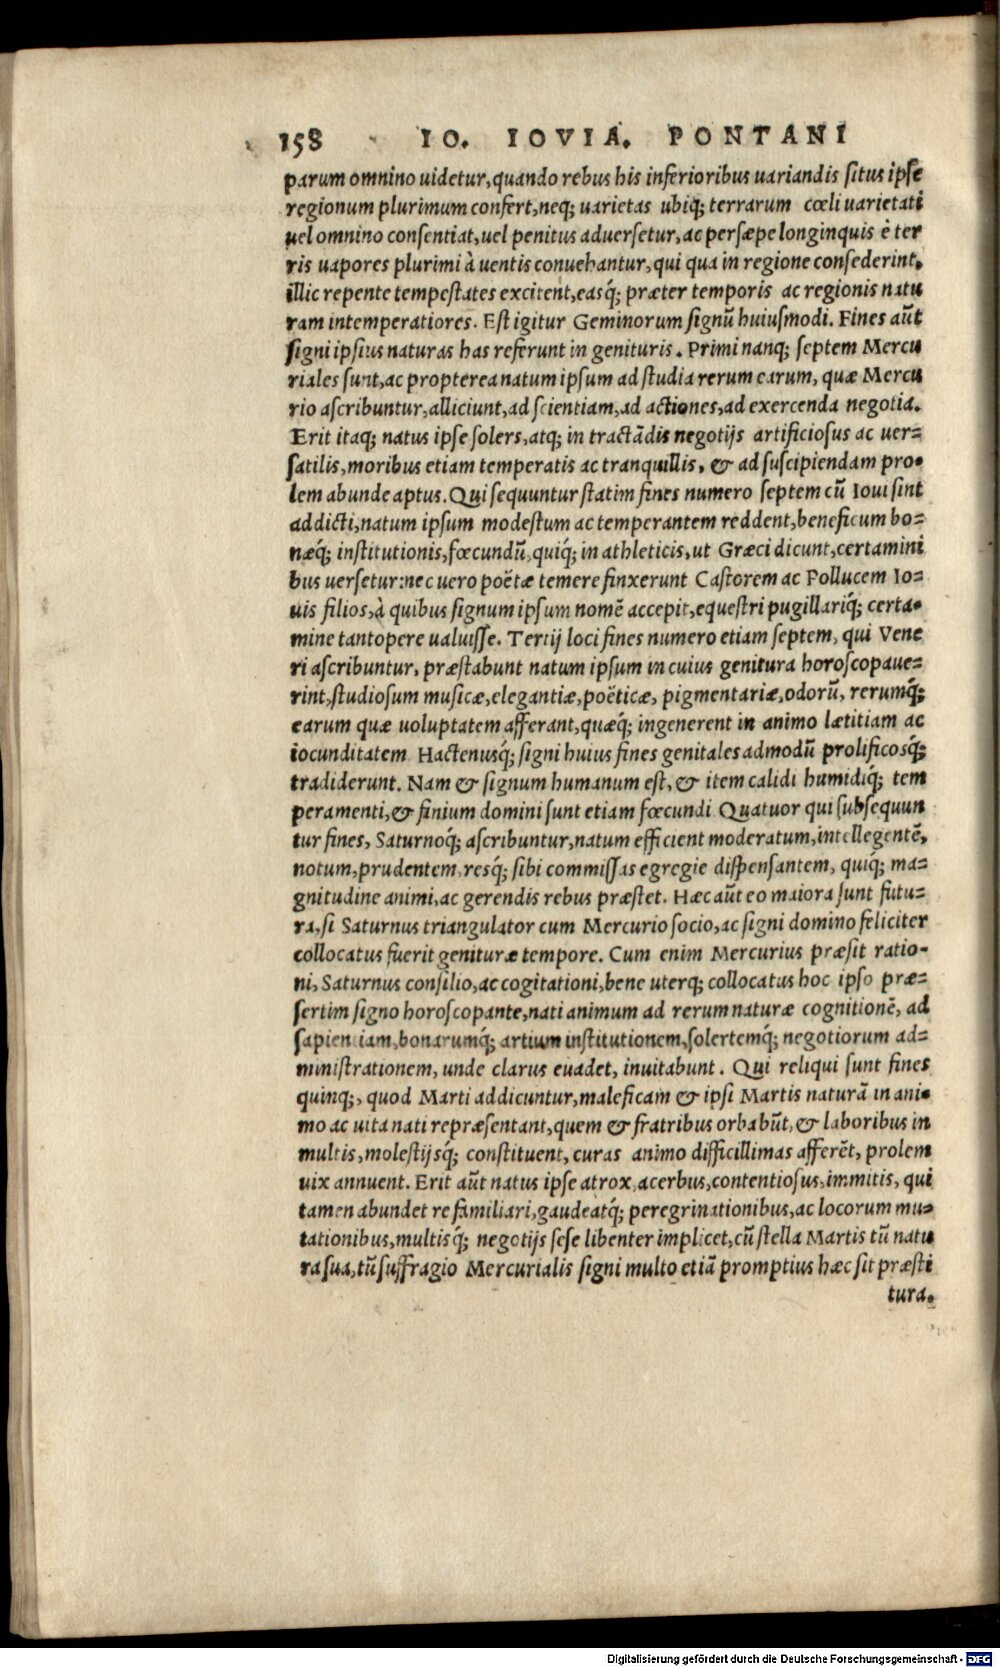 158 IO. IOVIA. PONTANI
parum omnino uidetur, quando rebus his inferioribus uariandis situs ipse
regionum plurimum confert, neq; uarietas ubiq; terrarum cœli uarietati
uel omnino consentiat, uel penitus aduersetur, ac persæpe longinquis è ter
ris uapores plurimi à uentis conuehantur, qui qua in regione consederint,
illic repente tempestates excitent, easq́; præter temporis ac regionis natu
ram intemperatiores. Est igitur Geminorum signũ huiusmodi. Fines aũt
signi ipsius naturas has referunt in genituris. Primi nanq; septem Mercu
riales sunt, ac propterea natum ipsum ad studia rerum earum, quæ Mercu
rio ascribuntur, alliciunt, ad scientiam, ad actiones, ad exercenda negotia.
Erit itaq; natus ipse solers, atq; in tractãdis negotijs artificiosus ac uer-
satilis, moribus etiam temperatis ac tranquillis, & ad suscipiendam pro-
lem abunde aptus. Qui sequuntur statim fines numero septem cũ Ioui sint
addicti, natum ipsum modestum ac temperantem reddent, beneficum bo-
næq́; institutionis, fœcundũ, quiq́; in athleticis, ut Græci dicunt, certamini
bus uersetur: nec uero poëtæ temere finxerunt Castorem ac Pollucem Io-
uis filios, à quibus signum ipsum nomẽ accepit, equestri pugillariq́; certa-
mine tantopere ualuisse. Tertij loci fines numero etiam septem, qui Vene
ri ascribuntur, præstabunt natum ipsum in cuius genitura horoscopaue-
rint, studiosum musicæ, elegantiæ, poëticæ, pigmentariæ, odorũ, rerumq́;
earum quæ uoluptatem afferant, quæq́; ingenerent in animo lætitiam ac
iocunditatem Hactenusq́; signi huius fines genitales admodũ prolificosq́;
tradiderunt. Nam & signum humanum est, & item calidi humidiq́; tem
peramenti, & finium domini sunt etiam fœcundi Quatuor qui subsequun
tur fines, Saturnoq́; ascribuntur, natum efficient moderatum, intellegentẽ,
notum, prudentem, resq́; sibi commissas egregie dispensantem, quiq́; ma-
gnitudine animi, ac gerendis rebus præstet. Hæc aũt eo maiora sunt futu-
ra, si Saturnus triangulator cum Mercurio socio, ac signi domino feliciter
collocatus fuerit genituræ tempore. Cum enim Mercurius præsit ratio-
ni, Saturnus consilio, ac cogitationi, bene uterq; collocatus hoc ipso præ-
sertim signo horoscopante, nati animum ad rerum naturæ cognitionẽ, ad
sapientiam, bonarumq́; artium institutionem, solertemq́; negotiorum ad-
ministrationem, unde clarus euadet, inuitabunt. Qui reliqui sunt fines
quinq;, quod Marti addicuntur, maleficam & ipsi Martis naturã in ani-
mo ac uita nati repræsentant, quem & fratribus orbabũt, & laboribus in
multis, molestijsq́; constituent, curas animo difficillimas afferẽt, prolem
uix annuent. Erit aũt natus ipse atrox, acerbus, contentiosus, immitis, qui
tamen abundet re familiari, gaudeatq́; peregrinationibus, ac locorum mu-
tationibus, multisq́; negotijs sese libenter implicet, cũ stella Martis tũ natu
ra sua, tũ suffragio Mercurialis signi multo etiã promptius hæc sit præsti
tura.
Digitalisierung gefördert durch die Deutsche Forschungsgemeinschaft - DFG